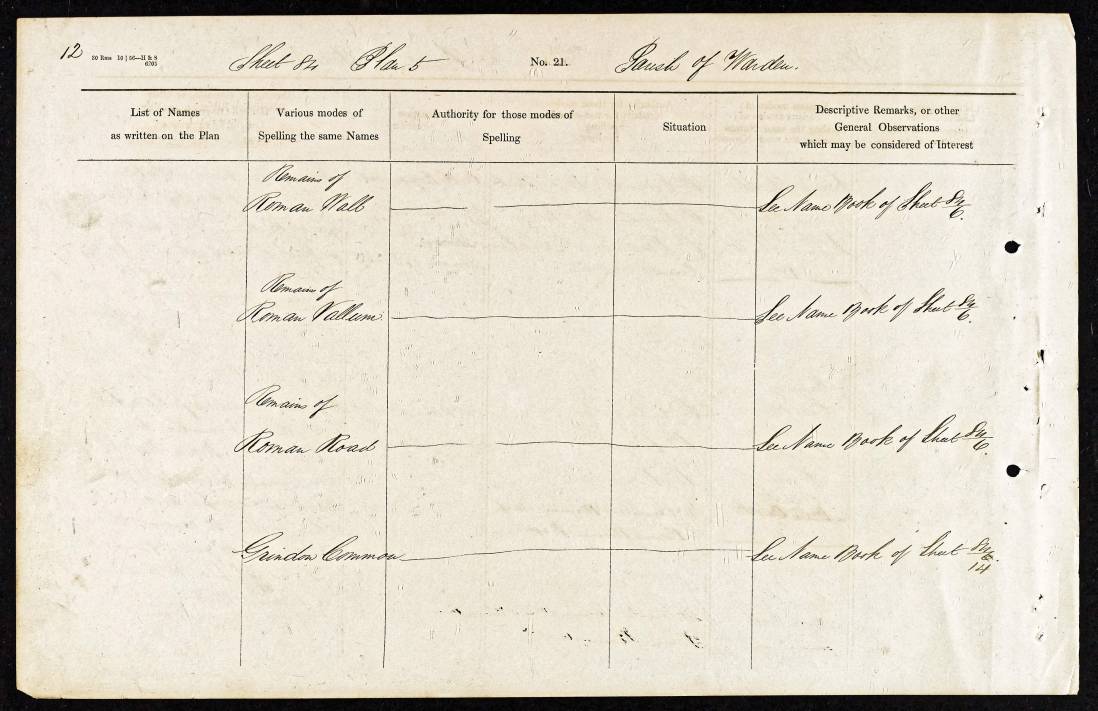 12 30 Rms 10 | 56—H & S Sheet 84 Plan 5 No. 21. Parish of Warden.
6705
List of Names
as written on the Plan
Various modes of
Spelling the same Names
Authority for those modes of
Spelling
Situation
Descriptive Remarks, or other
General Observations
which may be considered of Interest
Remains of
Roman Wall See Name Book of Sheet 84/6.
Remains of
Roman Vallum See Name Book of Sheet 84/6.
Remains of
Roman Road See Name Book of Sheet 84/6.
Grindon Common See Name Book of Sheet 84/14